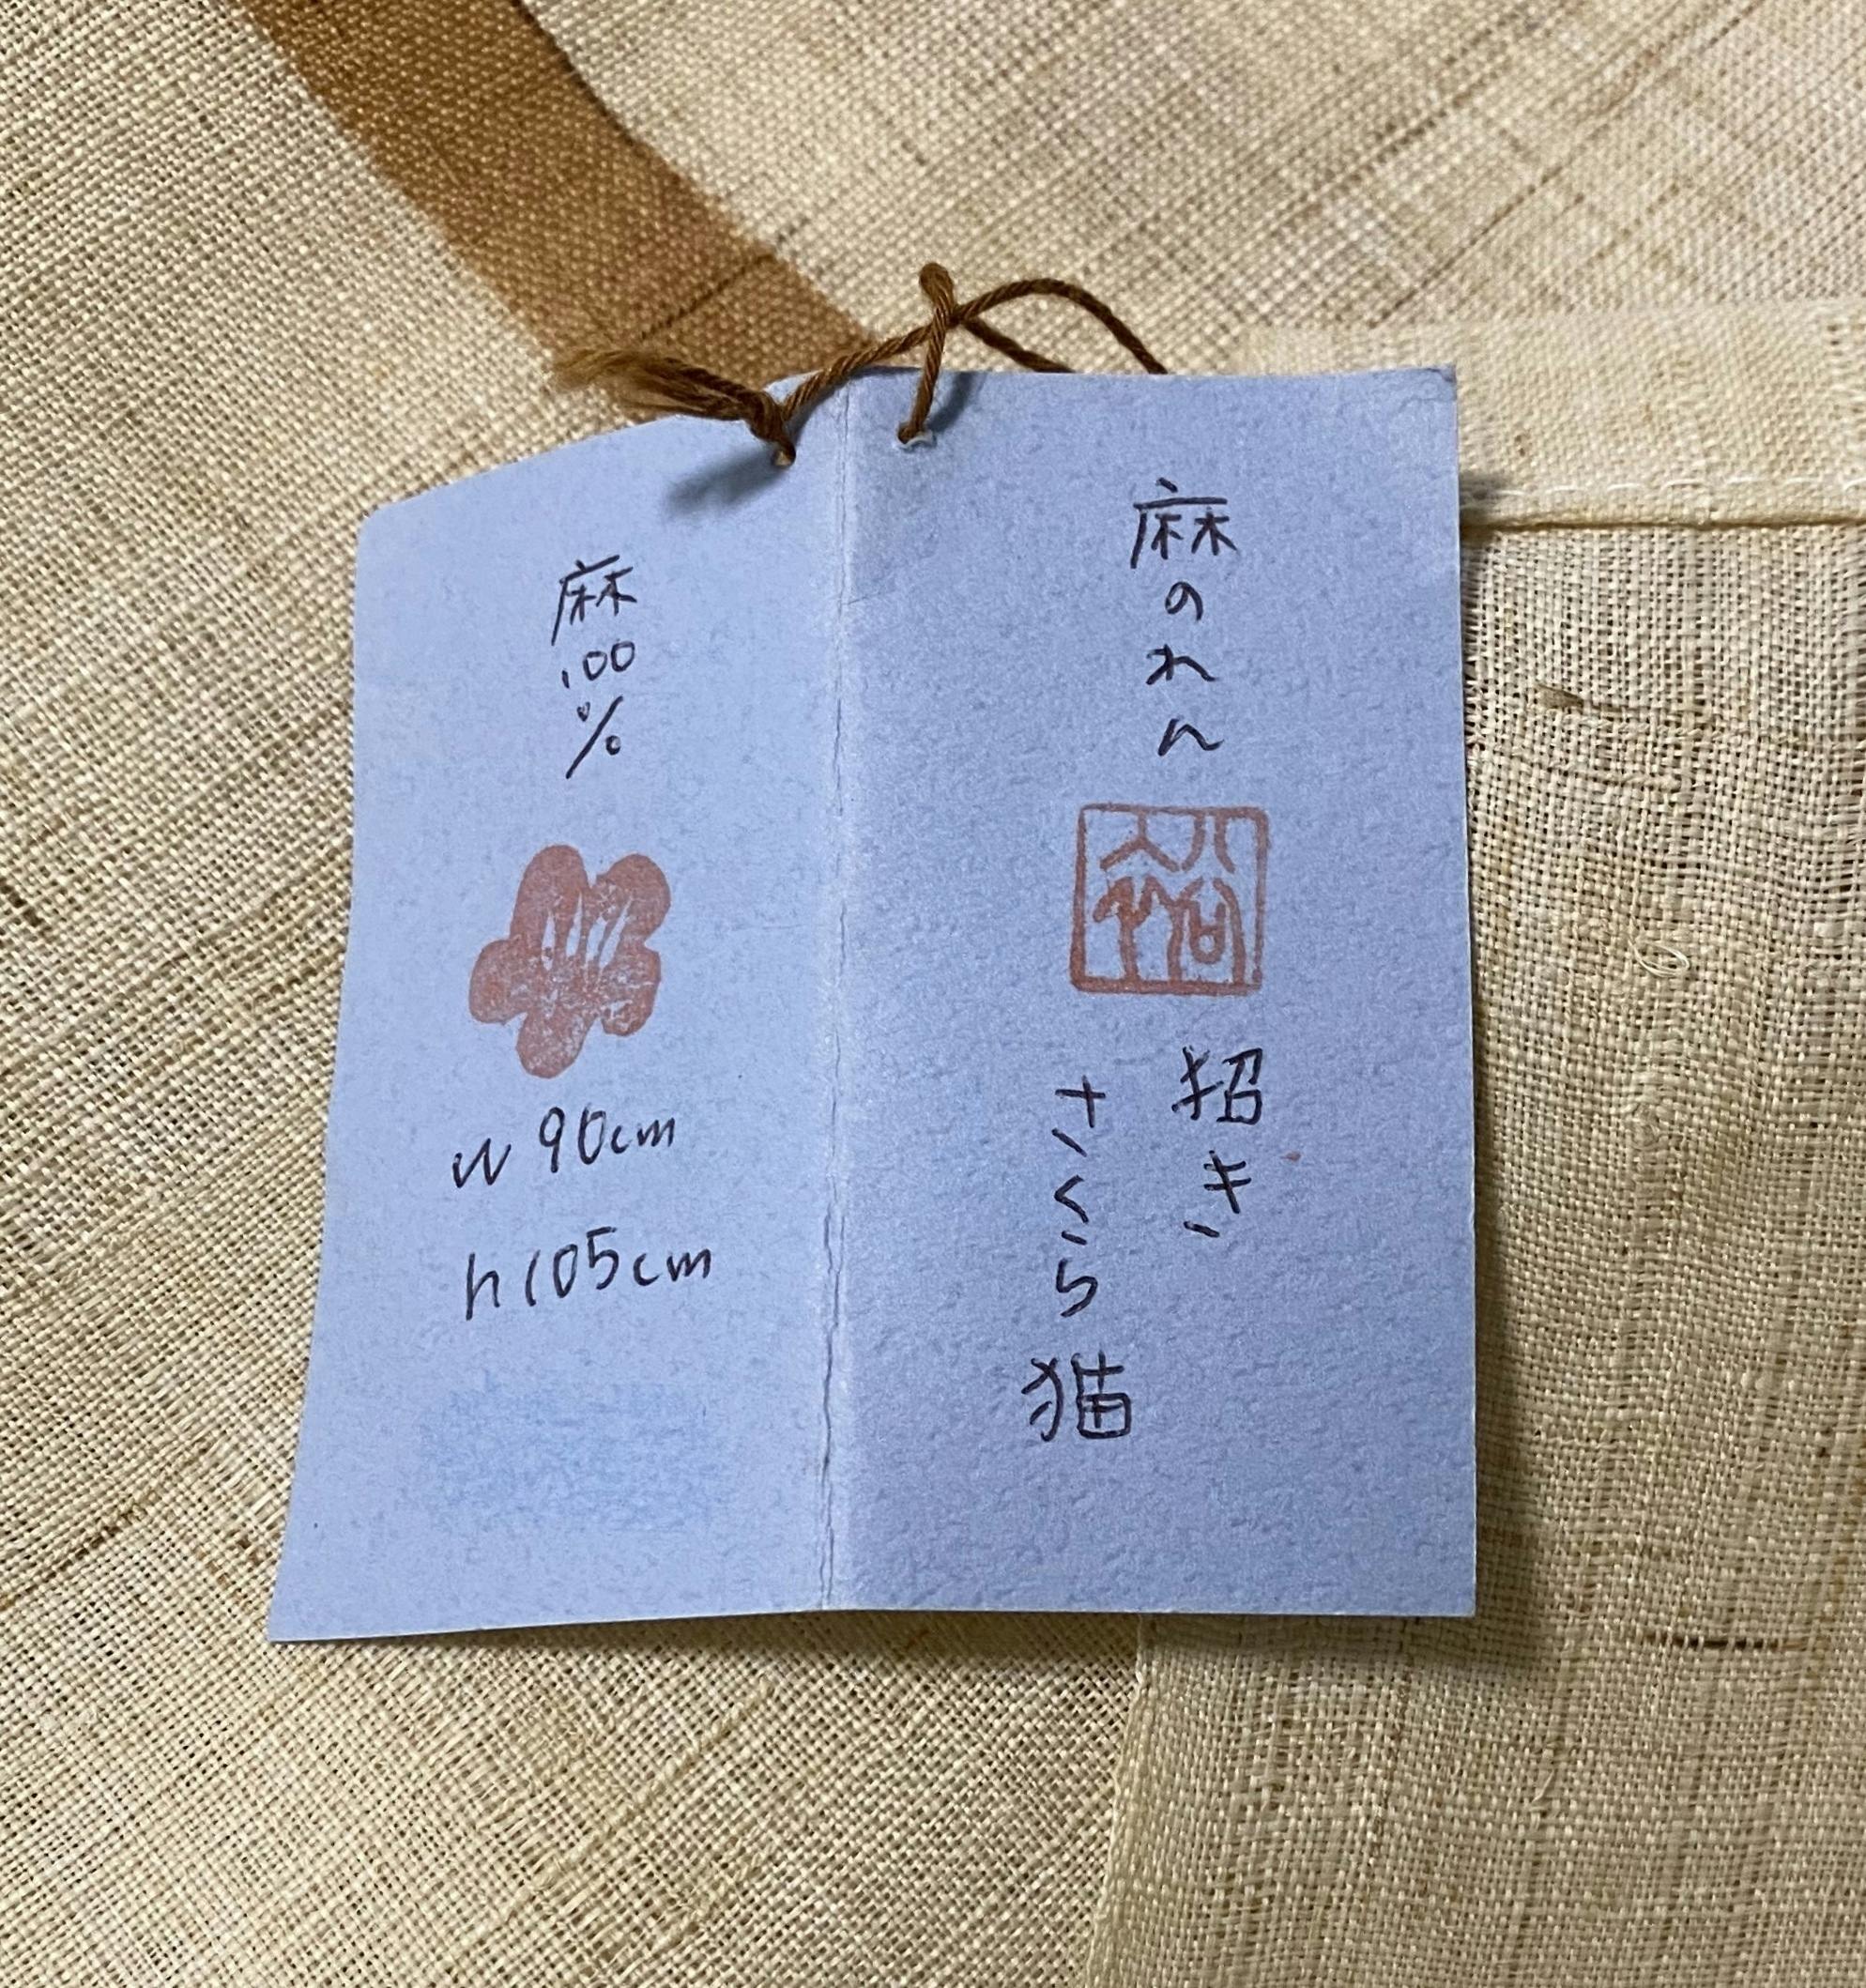 麻のれん
招き
さくら猫
麻100%
w 90cm
h 105cm